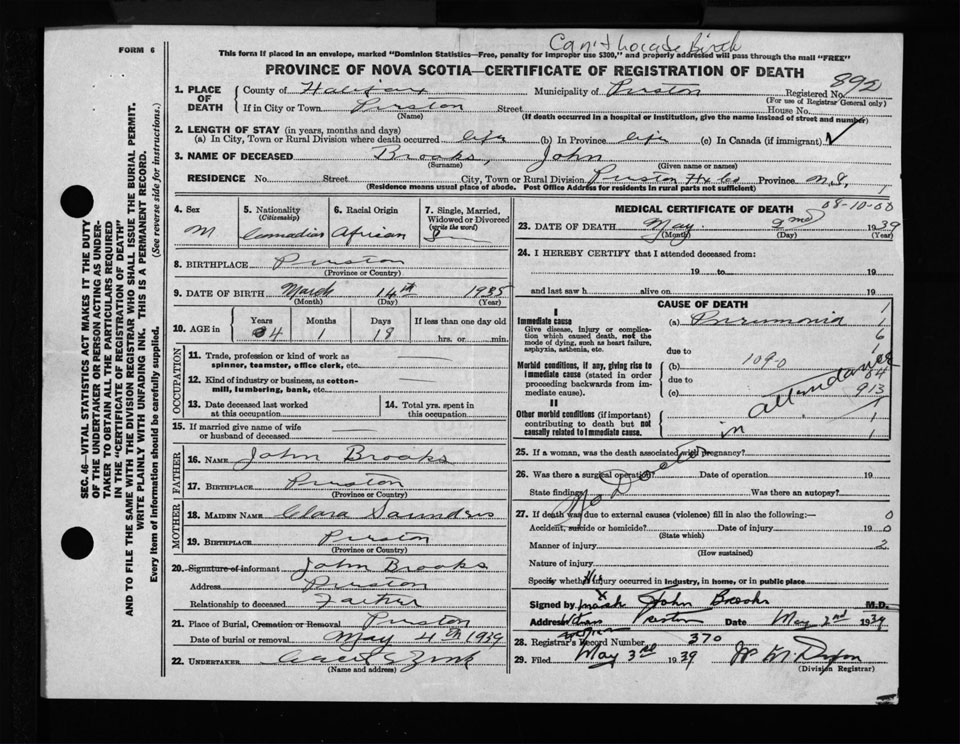 Can't locate Birth
FORM 6
This form if placed in an envelope, marked "Dominion Statistics—Free, penalty for improper use $300," and properly addressed will pass through the mail "FREE"
PROVINCE OF NOVA SCOTIA—CERTIFICATE OF REGISTRATION OF DEATH
892
1. PLACE OF DEATH
County of Halifax Municipality of Preston Registered No.
(For use of Registrar General only)
If in City or Town Preston Street House No.
(Name) (If death occurred in a hospital or institution, give the name instead of street and number)
2. LENGTH OF STAY (in years, months and days)
(a) In City, Town or Rural Division where death occurred life (b) In Province life (c) In Canada (if immigrant)
3. NAME OF DECEASED Brooks, John
(Surname) (Given name or names)
RESIDENCE No. Street City, Town or Rural Division Preston Hx Co Province N.S. 1
(Residence means usual place of abode. Post Office Address for residents in rural parts not sufficient)
4. Sex M
5. Nationality (Citizenship) Canadian
6. Racial Origin African
7. Single, Married, Widowed or Divorced (write the word) S
8. BIRTHPLACE Preston
(Province or Country)
9. DATE OF BIRTH March 14th 1935
(Month) (Day) (Year)
10. AGE in Years Months Days If less than one day old
4 1 18 hrs. or min.
OCCUPATION
11. Trade, profession or kind of work as spinner, teamster, office clerk, etc.
12. Kind of industry or business, as cotton-mill, lumbering, bank, etc.
13. Date deceased last worked at this occupation
14. Total yrs. spent in this occupation
15. If married give name of wife or husband of deceased
FATHER
16. NAME John Brooks
17. BIRTHPLACE Preston
(Province or Country)
MOTHER
18. MAIDEN NAME Clara Saunders
19. BIRTHPLACE Preston
(Province or Country)
20. Signature of informant John Brooks
Address Preston
Relationship to deceased Father
21. Place of Burial, Cremation or Removal Preston
Date of burial or removal May 4th 1939
22. UNDERTAKER
(Name and address)
MEDICAL CERTIFICATE OF DEATH 08-10-03
23. DATE OF DEATH May 2nd 1939
(Month) (Day) (Year)
24. I HEREBY CERTIFY that I attended deceased from:
19 to 19
and last saw h alive on 19
CAUSE OF DEATH
I
Immediate cause
Give disease, injury or complication which caused death, not the mode of dying, such as heart failure, asphyxia, asthenia, etc.
(a) Pneumonia
due to
Morbid conditions, if any, giving rise to immediate cause (stated in order proceeding backwards from immediate cause).
(b) 1090
due to
(c)
II
Other morbid conditions (if important) contributing to death but not causally related to immediate cause.
1
1
6
1
84
913
1
1
No Doctor in attendance
25. If a woman, was the death associated with pregnancy?
26. Was there a surgical operation? Date of operation 19
State findings Was there an autopsy?
27. If death was due to external causes (violence) fill in also the following:— 0
Accident, suicide or homicide? Date of injury 19 0
(State which)
Manner of injury 2
(How sustained)
Nature of injury
Specify whether injury occurred in industry, in home, or in public place
His
X
Signed by mark John Brooks M.D.
Address Preston Date May 2nd 1939
28. Registrar's Record Number 370
29. Filed May 3rd 1939
(Division Registrar)
SEC. 46—VITAL STATISTICS ACT MAKES IT THE DUTY OF THE UNDERTAKER OR PERSON ACTING AS UNDERTAKER TO OBTAIN ALL THE PARTICULARS REQUIRED IN THE "CERTIFICATE OF REGISTRATION OF DEATH"
AND TO FILE THE SAME WITH THE DIVISION REGISTRAR WHO SHALL ISSUE THE BURIAL PERMIT.
WRITE PLAINLY WITH UNFADING INK. THIS IS A PERMANENT RECORD.
Every item of information should be carefully supplied. (See reverse side for instructions.)